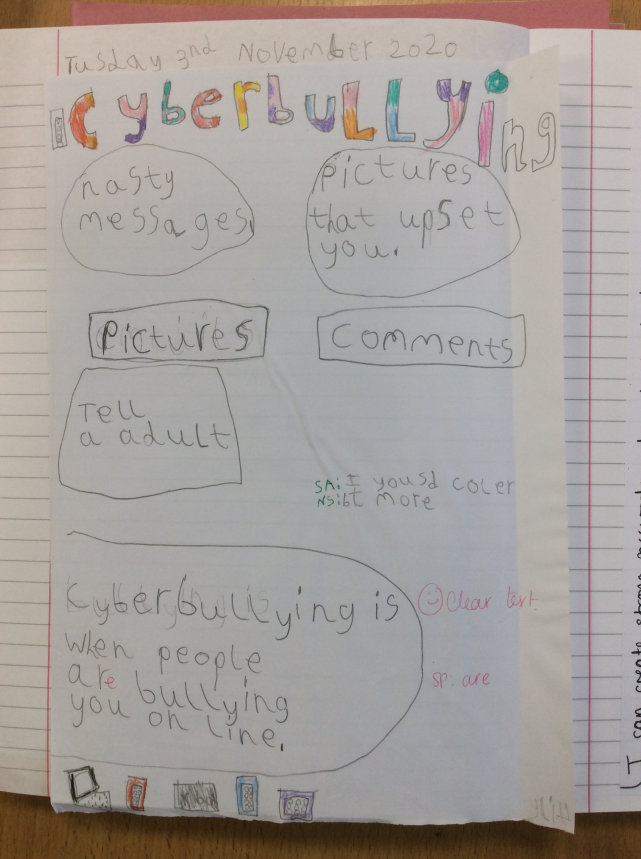 Tusday 3nd November 2020
Cyberbullying
nasty
messages.
pictures
that upset
you.
Pictures
Comments
Tell
a adult
I yousd coler
more
Cyberbullying is
when people
are bullying
you on line.
Clear text.
sp: are